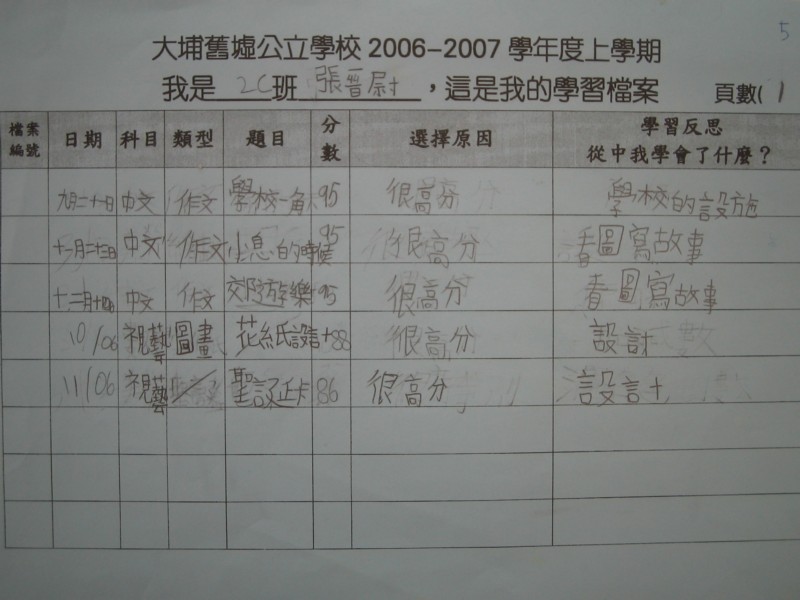 5
大埔舊墟公立學校 2006-2007 學年度上學期
我是 2C 班 張晉尉 ，這是我的學習檔案 頁數( 1
檔案編號 日期 科目 類型 題目 分數 選擇原因 學習反思 從中我學會了什麼？
九月二十日 中文 作文 學校一角 95 很高分 學校的設施
十一月二十三日 中文 作文 小息的時候 95 很高分 看圖寫故事
十二月十四日 中文 作文 郊遊樂 95 很高分 看圖寫故事
10/06 視藝 圖畫 花紙設計 88 很高分 設計
11/06 視藝 聖誕卡 86 很高分 設計